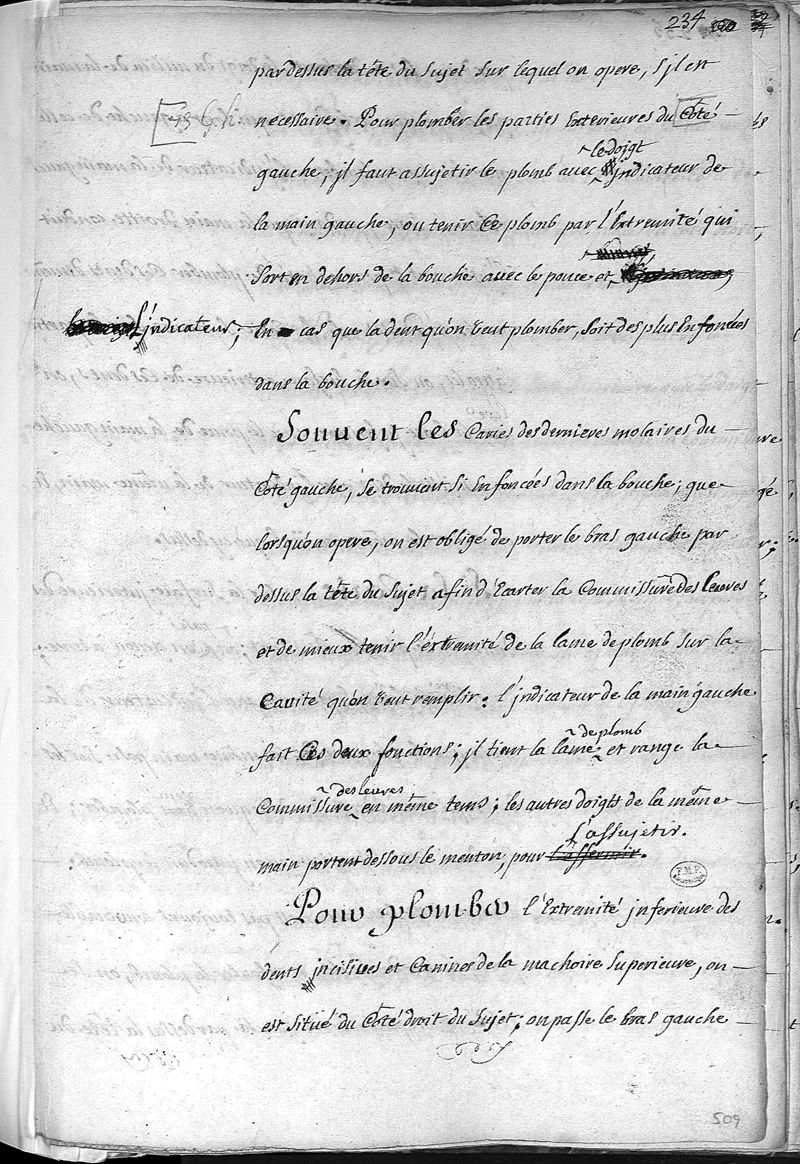 234
par dessus la tête du sujet sur lequel on opere, s'jl en
necessaire. Pour plomber les parties Exterieures du Côté
gauche, jl faut assujetir le plomb avec le doigt jndicateur de
la main gauche, ou tenir Ce plomb par l'Extremité qui
sort en dehors de la bouche avec le pouce et
L'jndicateur; En cas que la dent qu'on veut plomber, soit des plus Enfoncées
dans la bouche.
Souvent les Caries des dernieres molaires du
Côté gauche, se trouvent si Enfoncées dans la bouche; que
lorsqu'on opere, on est obligé de porter le bras gauche par
dessus la tête du sujet afin d'Ecarter la Commissure des levres
et de mieux tenir l'éxtremité de la lame de plomb sur la
Cavité qu'on veut remplir: l'jndicateur de la main gauche
fait Ces deux fonctions; jl tient la lame de plomb et range la
Commissure des levres en même tems; les autres doigts de la même
main portent dessous le menton, pour L'assujetir.
Pour plomber l'Extremité jnferieure des
dents jncisives et Canines de la machoire superieure, on
est situé du Côté droit du sujet; on passe le bras gauche
509